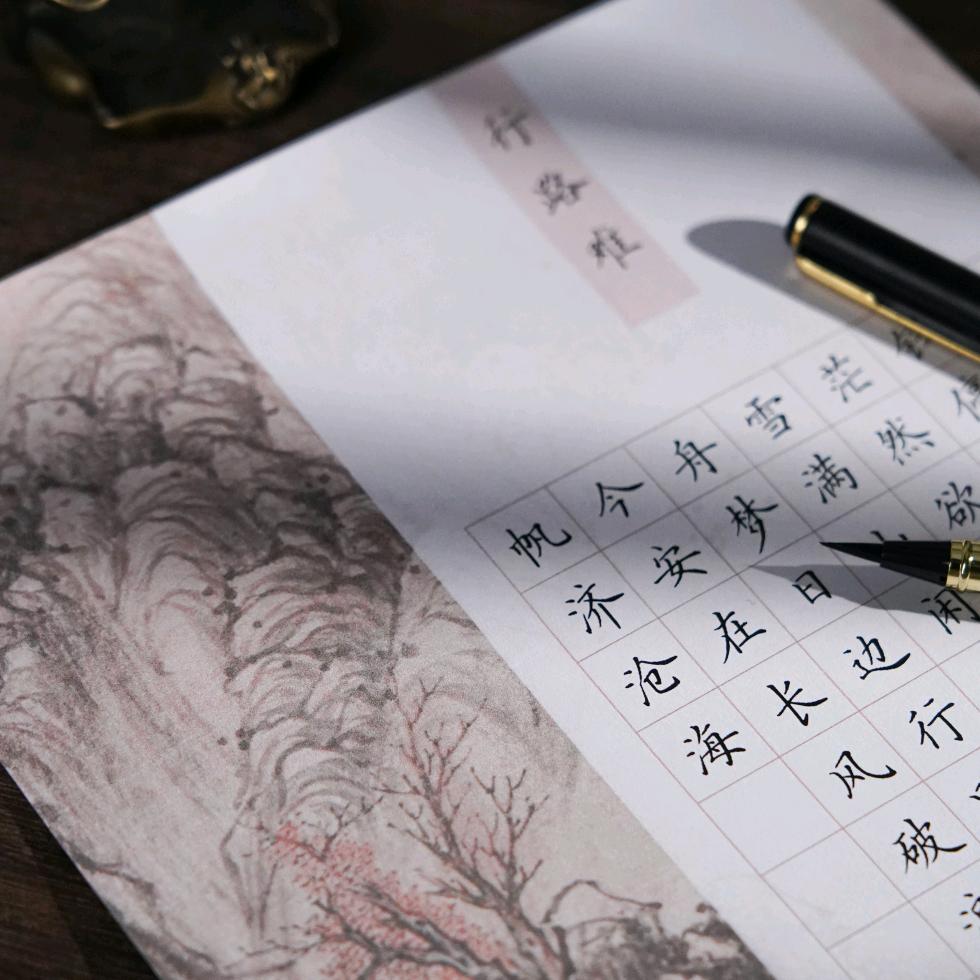 行路难
茫然欲
雪满闲
舟梦日边行
今安在长风破
帆济沧海